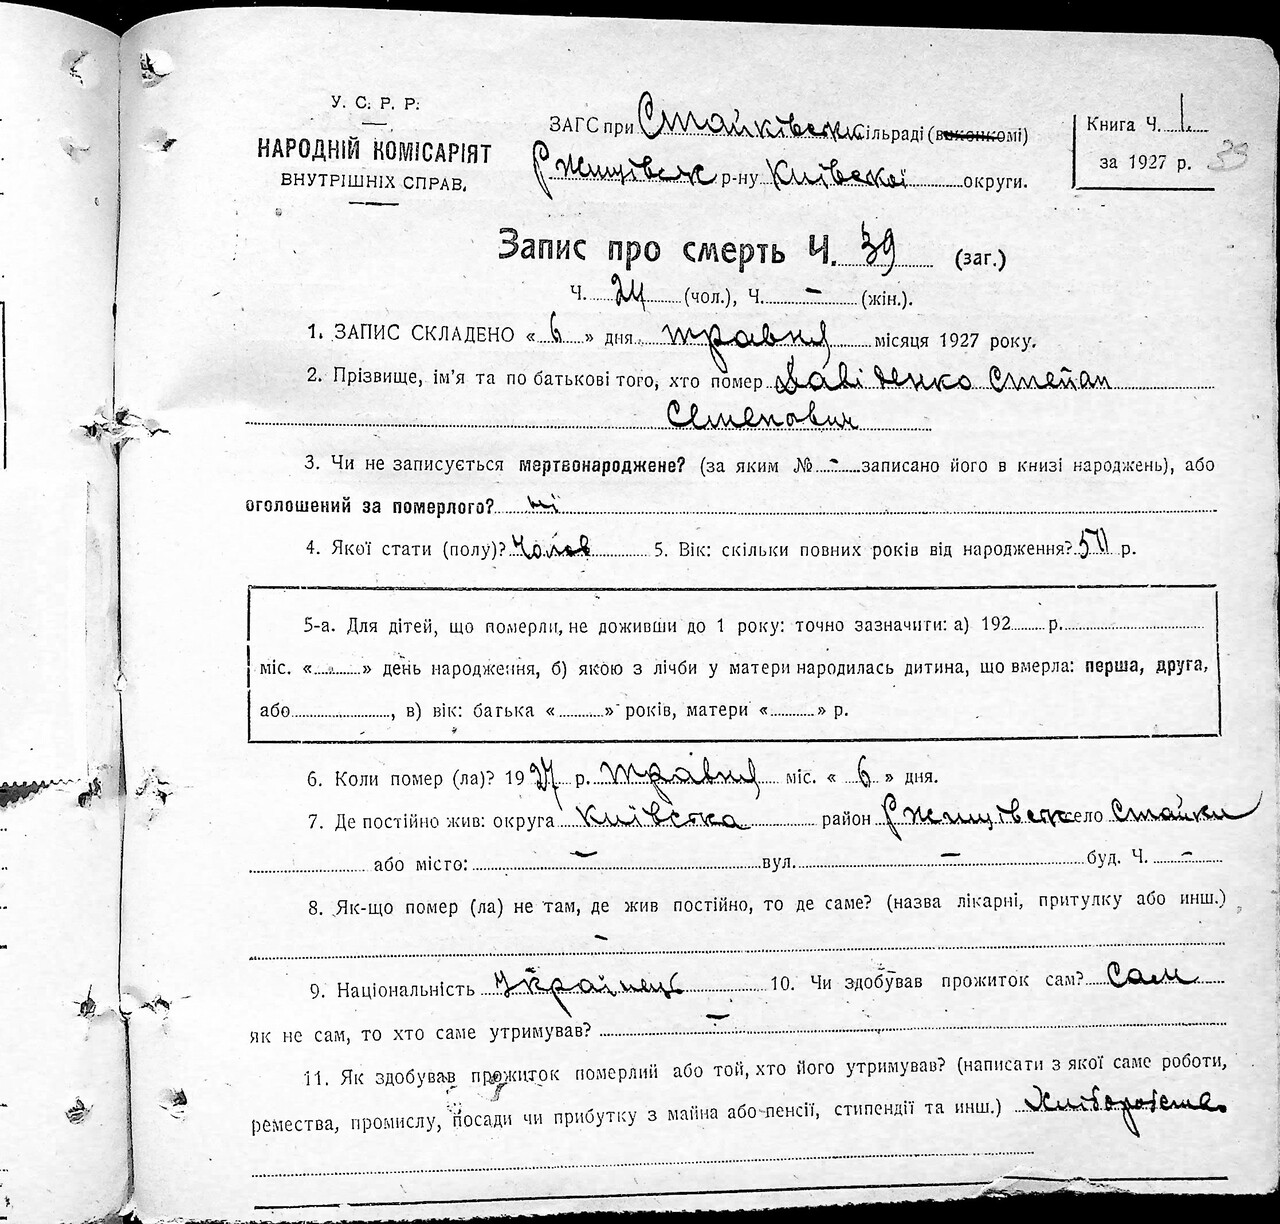 У. С. Р. Р.
НАРОДНІЙ КОМІСАРІЯТ
ВНУТРІШНІХ СПРАВ.
ЗАГС при Стайківськ сільраді (виконкомі)
Ржищівськ р-ну Київської округи.
Книга Ч. 1.
за 1927 р. 39
Запис про смерть Ч. 39 (заг.)
Ч. 24 (чол.), Ч. - (жін.).
1. ЗАПИС СКЛАДЕНО « 6 » дня травня місяця 1927 року.
2. Прізвище, ім'я та по батькові того, хто помер Давіденко Степан
Семенович
3. Чи не записується мертвонароджене? (за яким № - записано його в книзі народжень), або
оголошений за померлого? ні
4. Якої стати (полу)? Чолов 5. Вік: скільки повних років від народження? р.
5-а. Для дітей, що померли, не доживши до 1 року: точно зазначити: а) 192 р.
міс. « » день народження, б) якою з лічби у матери народилась дитина, що вмерла: перша, друга,
або , в) вік: батька « » років, матери « » р.
6. Коли помер (ла)? 1927 р. травня міс. « 6 » дня.
7. Де постійно жив: округа Київська район Ржищівськ село Стайки
або місто: - вул. - буд. Ч. -
8. Як-що помер (ла) не там, де жив постійно, то де саме? (назва лікарні, притулку або инш.)
-
9. Національність Українець 10. Чи здобував прожиток сам? Сам
як не сам, то хто саме утримував? -
11. Як здобував прожиток померлий або той, хто його утримував? (написати з якої саме роботи,
ремества, промислу, посади чи прибутку з майна або пенсії, стипендії та инш.) Хліборобство